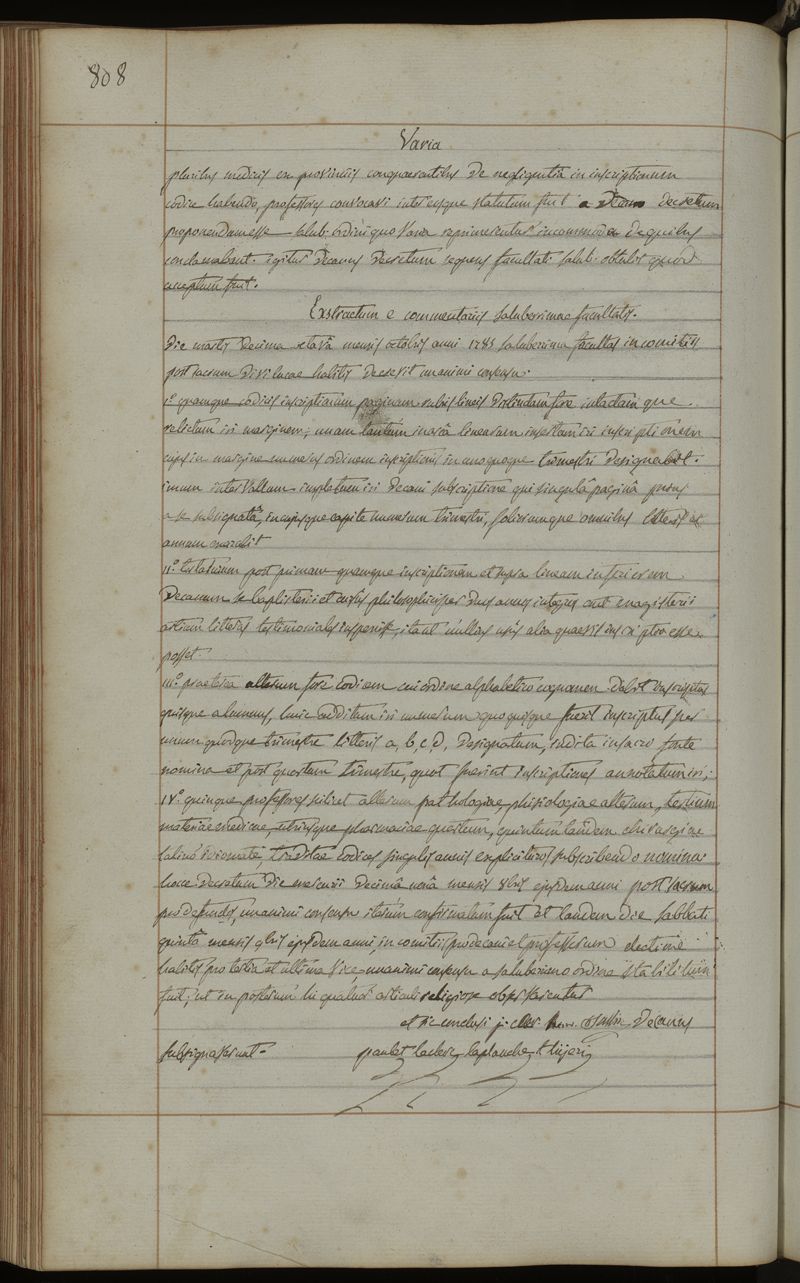 808
Varia
pluribus medicis en provinciis conquaerentibus de negligentiâ in inscriptionum
codice habendo, professores convocavi inter eosque statutum fuit a decano decretum
proponendum esse salub. ordini quo varia reprimerentur incommoda de quibus
conclamabant. igitur decanus decretum sequens facultati salub. obtulit quod
acceptum fuit.
Exstractum e commentariis saluberrimae facultatis.
die martis decima octavâ mensis octobris anni 1785 saluberrima facultas in comitiis
post sacrum divi lucae habitis decrevit unanimi consensu.
1.° quamque codicis inscriptionum paginam rubris lineis distinctam fore intactam que
relictum iri marginem; unam tantum linearum insertum iri inscriptionem
cujus in margine numerus ordinem inscriptionis in unoquoque trimestri designabit.
imum intervallum impletum iri decani subscriptione qui singulâ paginâ prius
a se subsignatâ, in cujusque capite numerum trimestri, foliorumque omnibus litteris et
annum
II.° testaturum post primam quamque inscriptionem et supra lineam
Decanum se baptisterii et cursûs philosophici per duos annos integros aut magisterii
artium litteras testimoniales inspexisse, ita ut nullus usûs alia quaevis inscriptio esse
posset.
III.° praeterea alterum fore codicem cui ordine alphabetico cognomen dabit
quisque alumnus, huic additum iri numerum quo quisque fuerit inscriptus per
unum quodque trimestre litteris a, b, c, d, designatum, indita in sacro fonte
nomina et post quartum trimestre, quot fuerint inscriptiones annotatum iri;
IV.° quinque professores scilicet alterum pathologiae, phisiologiae alterum, tertium
materiae medicae utriusque pharmaciae quartum, quintum tandem chirurgiae
latino idiomate traditae codices singulis annis explicituros subscribendo nomina
hocce decretum die mercurii decimâ nonâ mensis 8bris ejusdem anni post sacrum
pro defunctis, unanimi consensu iterum confirmatum fuit et tandem die sabbati
quintâ mensis 9bris ejusdem anni, in comitiis pro decani et professorum electione
habitis, pro tertia et ultima vice, unanimi consensu a saluberrimo ordine stabilitum
fuit; ut in posterum hi quatuor articuli religiose observarentur
et sic conclusi Decanus
subsignaverunt